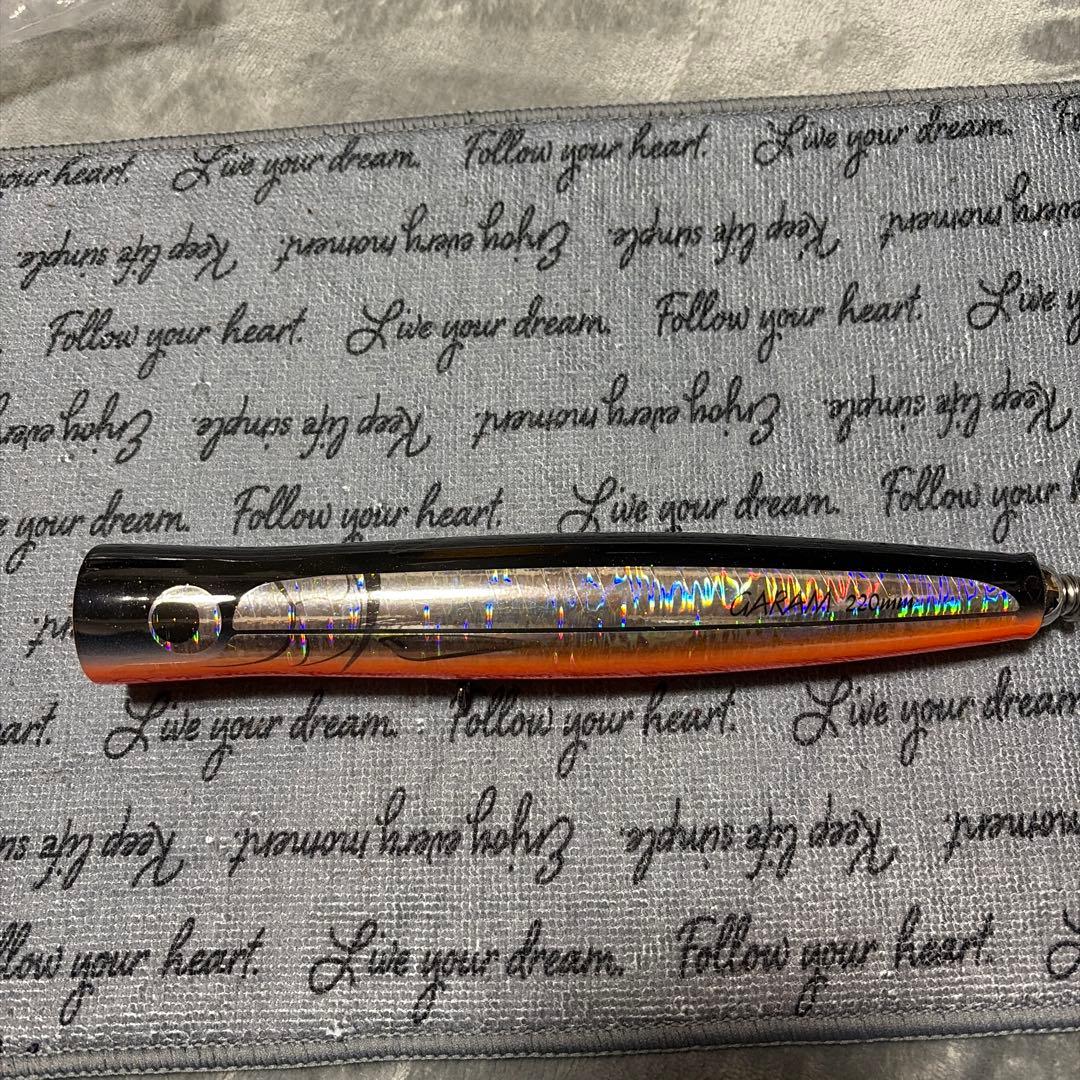 your heart. Live your dream. Follow your heart. Live your dream.
Keep life simple. Enjoy every moment. Keep life simple. moment.
Follow your heart. Live your dream. Follow your heart. Live
every Enjoy Keep life simple. Enjoy every moment. Keep life simple.
your dream. Follow your heart. Live your dream. Follow your
GARAM 220mm
heart. Live your dream. Follow your heart. Live your dream
Keep life simple. Enjoy every moment. Keep life simple. moment.
Follow your heart. Live your dream. Follow your heart.